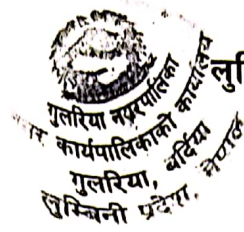 गुलरिया नगरपालिका
नगर कार्यपालिकाको कार्यालय
गुलरिया, बर्दिया
लुम्बिनी प्रदेश, नेपाल
लु